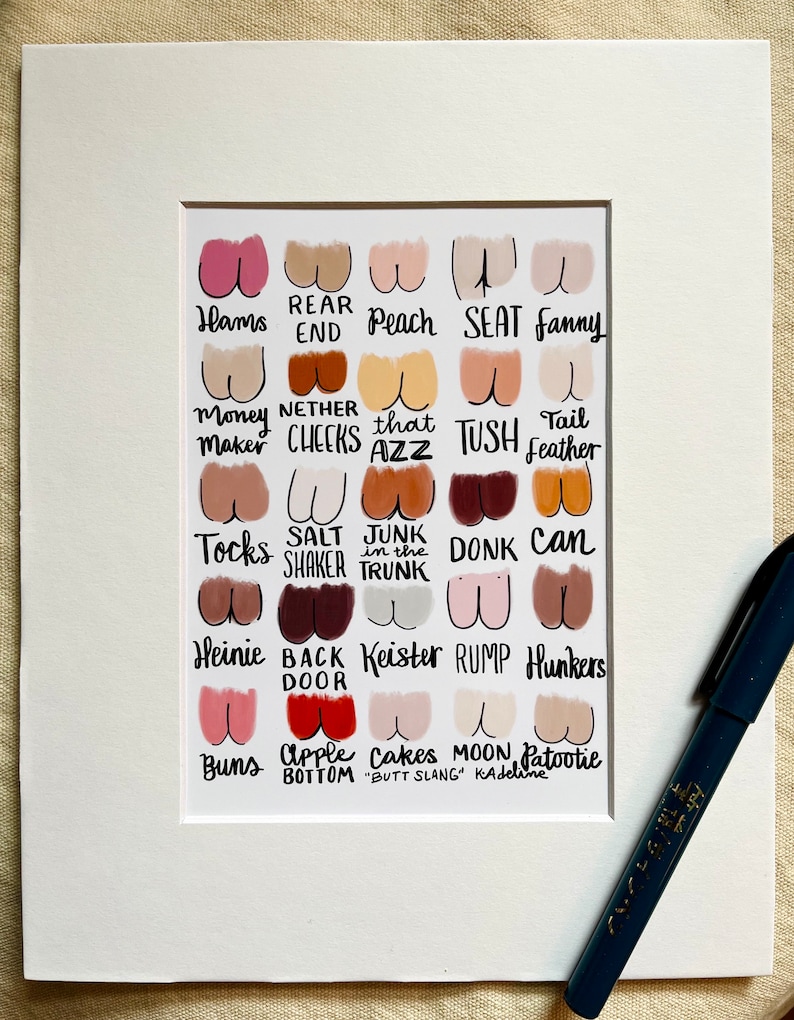 Hams
REAR
END
Peach
SEAT
fanny
Money
Maker
NETHER
CHEEKS
that
AZZ
TUSH
Tail
feather
Tocks
SALT
SHAKER
JUNK
in the
TRUNK
DONK
Can
Heinie
BACK
DOOR
Keister
RUMP
Hunkers
Buns
apple
BOTTOM
Cakes
MOON
Patootie
"BUTT SLANG" K.Adeline